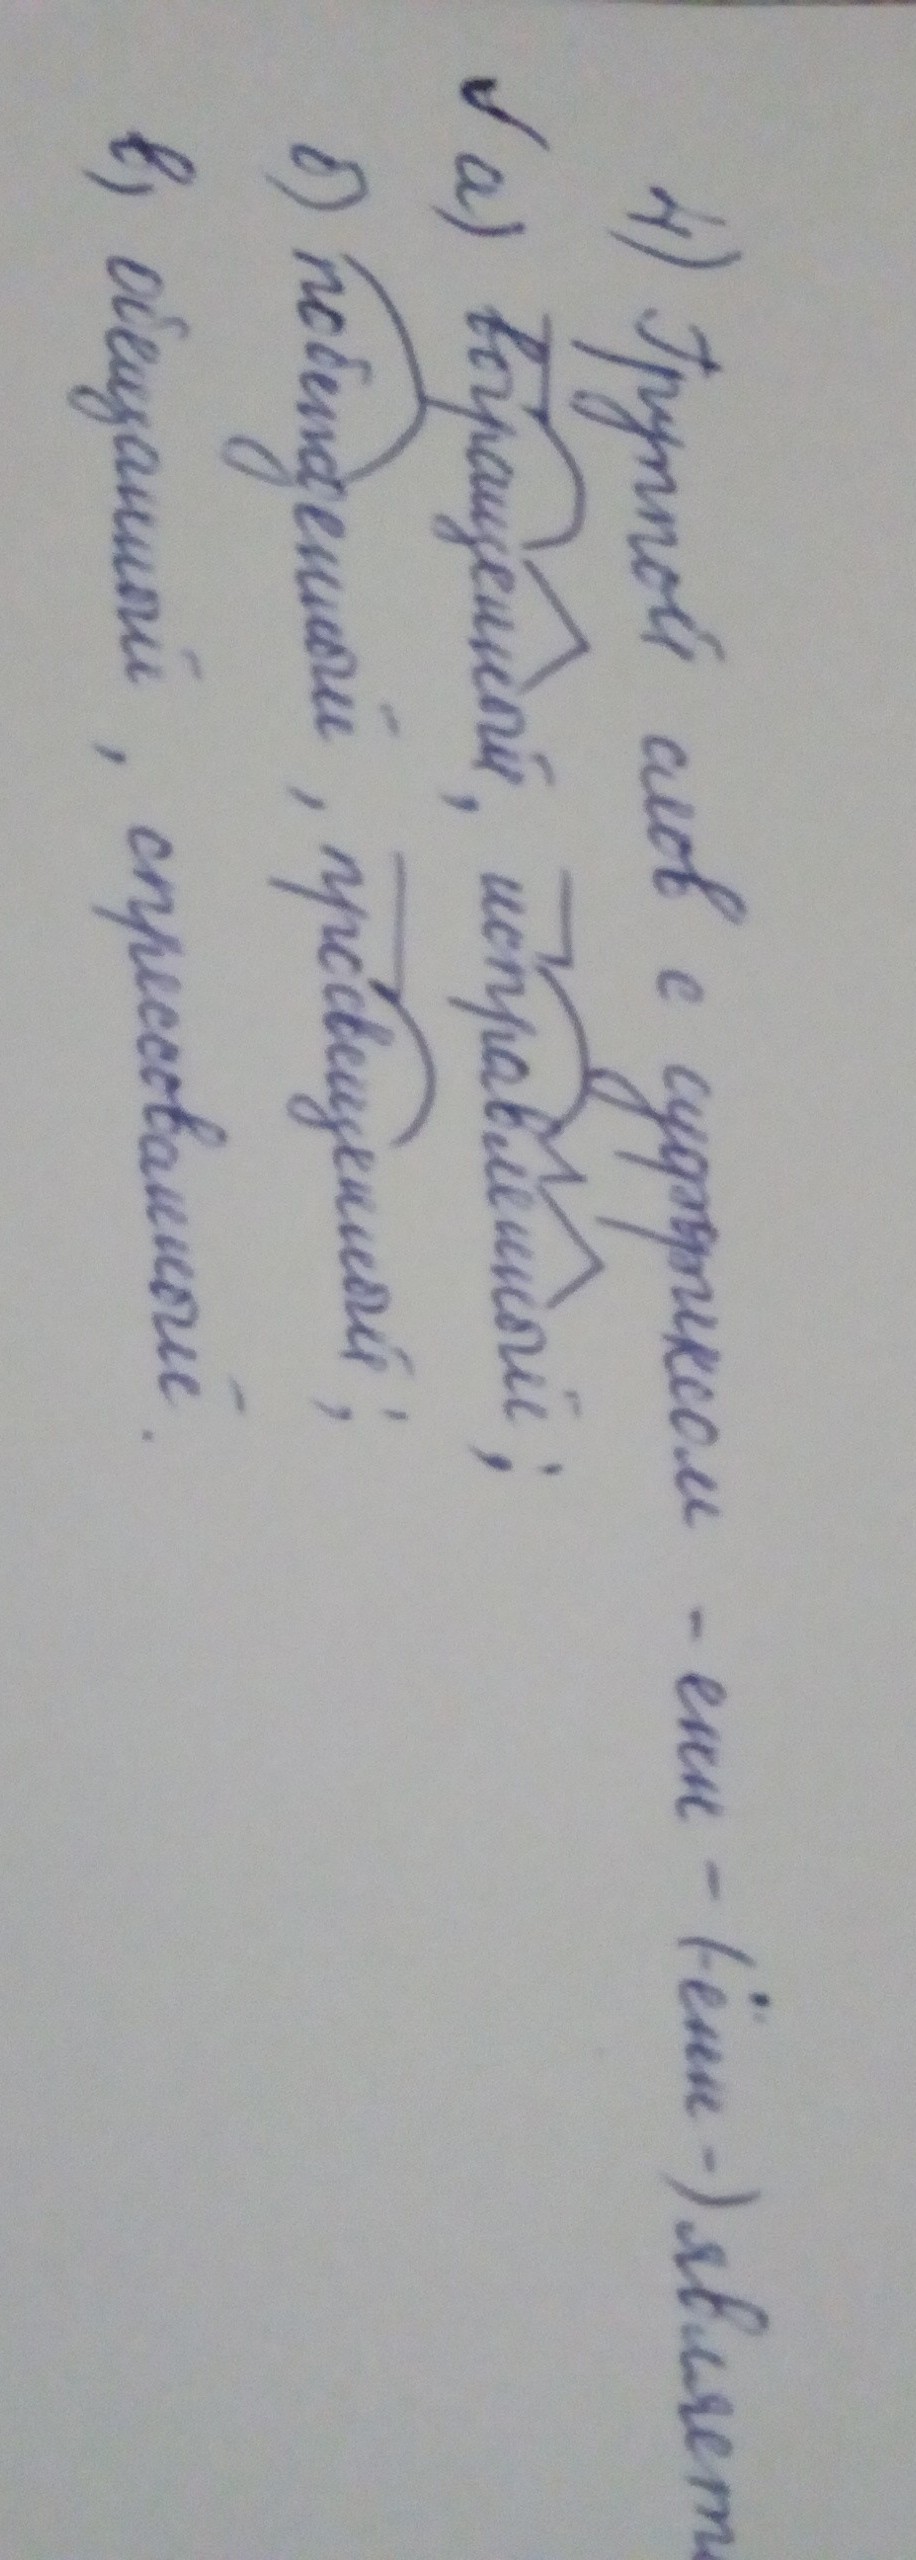 4) Группой слов с суффиксом -енн- (-ённ-) являетс
✓ а) возращенный, исправленный;
б) побежденный, просвещенный;
в) обещанный, спрессованный.